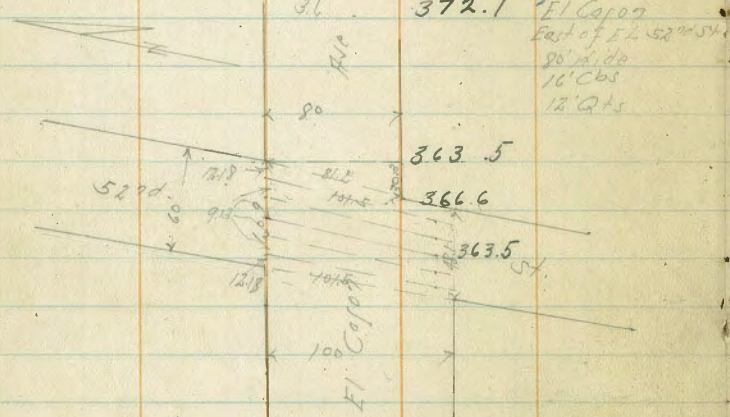 3.6 372.1 El Cajon
East of E.L. 52nd St.
80' Wide
16' Cbs
12' Qts
Ave
80
363.5
12.18 81.2
52nd 101.5 366.6
60'
9.13
363.5
St.
12.18 101.5
100
El Cajon